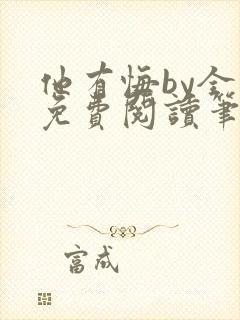 他有悔by金
免費閱讀筆
富成